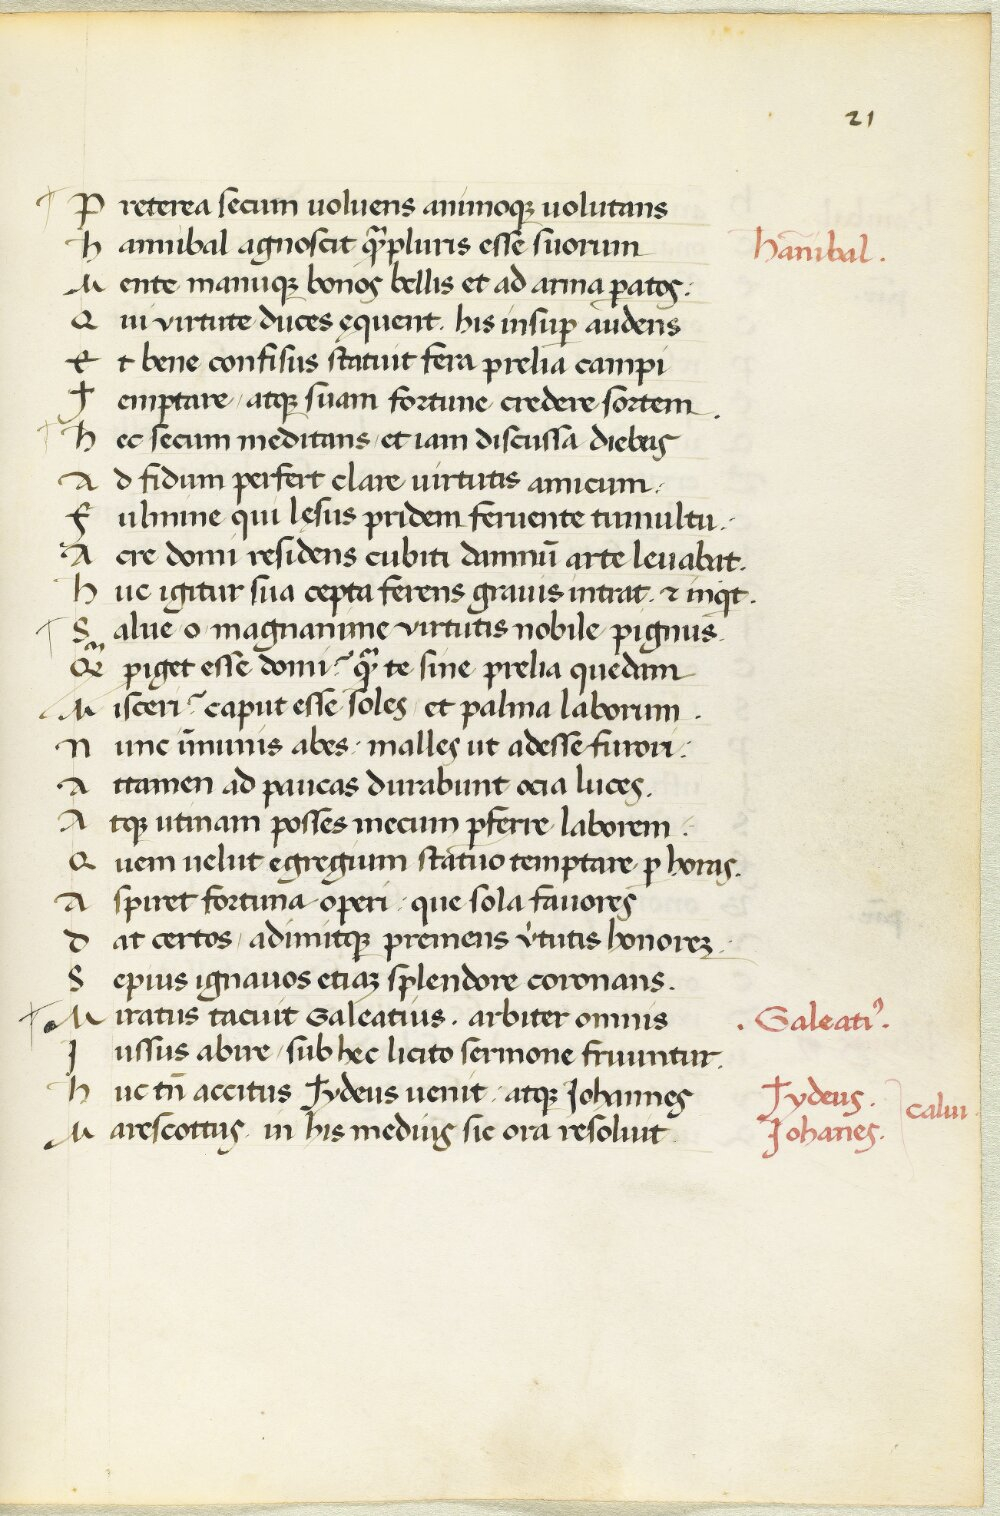 21
Preterea secum uoluens animoqꝫ uolutans
hannibal agnoscit qᷓpluris esse suorum
hānibal.
Mente manuqꝫ bonos bellis et ad arma ꝑatos:
Qui virtute duces ęquent. his insuꝑ audens
Et bene confisus statuit fera prelia campi
Temptare / atqꝫ suam fortune credere sortem.
hec secum meditans / et iam discussa diebus
Ad fidum perfert clare uirtutis amicum:
Fulmine qui lęsus pridem feruente tumultu:
Acre domi residens cubiti damnū arte leuabat.
huc igitur sua cepta ferens grauis intrat. ⁊ inqͥt.
Salue o magnanime virtutis nobile pignus.
Qᷓ piget esse domi? qᷓ te sine prelia quedam
Misceri? caput esse soles / et palma laborum.
Nunc īmunis abes: malles ut adesse furori:
Attamen ad paucas durabunt ocia luces.
Atqꝫ utinam posses mecum ꝑferre laborem:
Quem uelut egregium statuo temptare ꝑ horas.
Aspiret fortuna operi: que sola fauores
Dat certos / adimitqꝫ premens v̓tutis honorēꝫ.
Sepius ignauos etiaꝫ splendore coronans.
Miratus tacuit Galeatius. arbiter omnis
. Galeatiꝰ.
Iussus abire / sub hec licito sermone fruuntur.
huc tn̄ accitus Tydeus uenit: atqꝫ Johannes
Tydeus.
Marescottus. in his medius sic ora resoluit.
Johānes.
calui